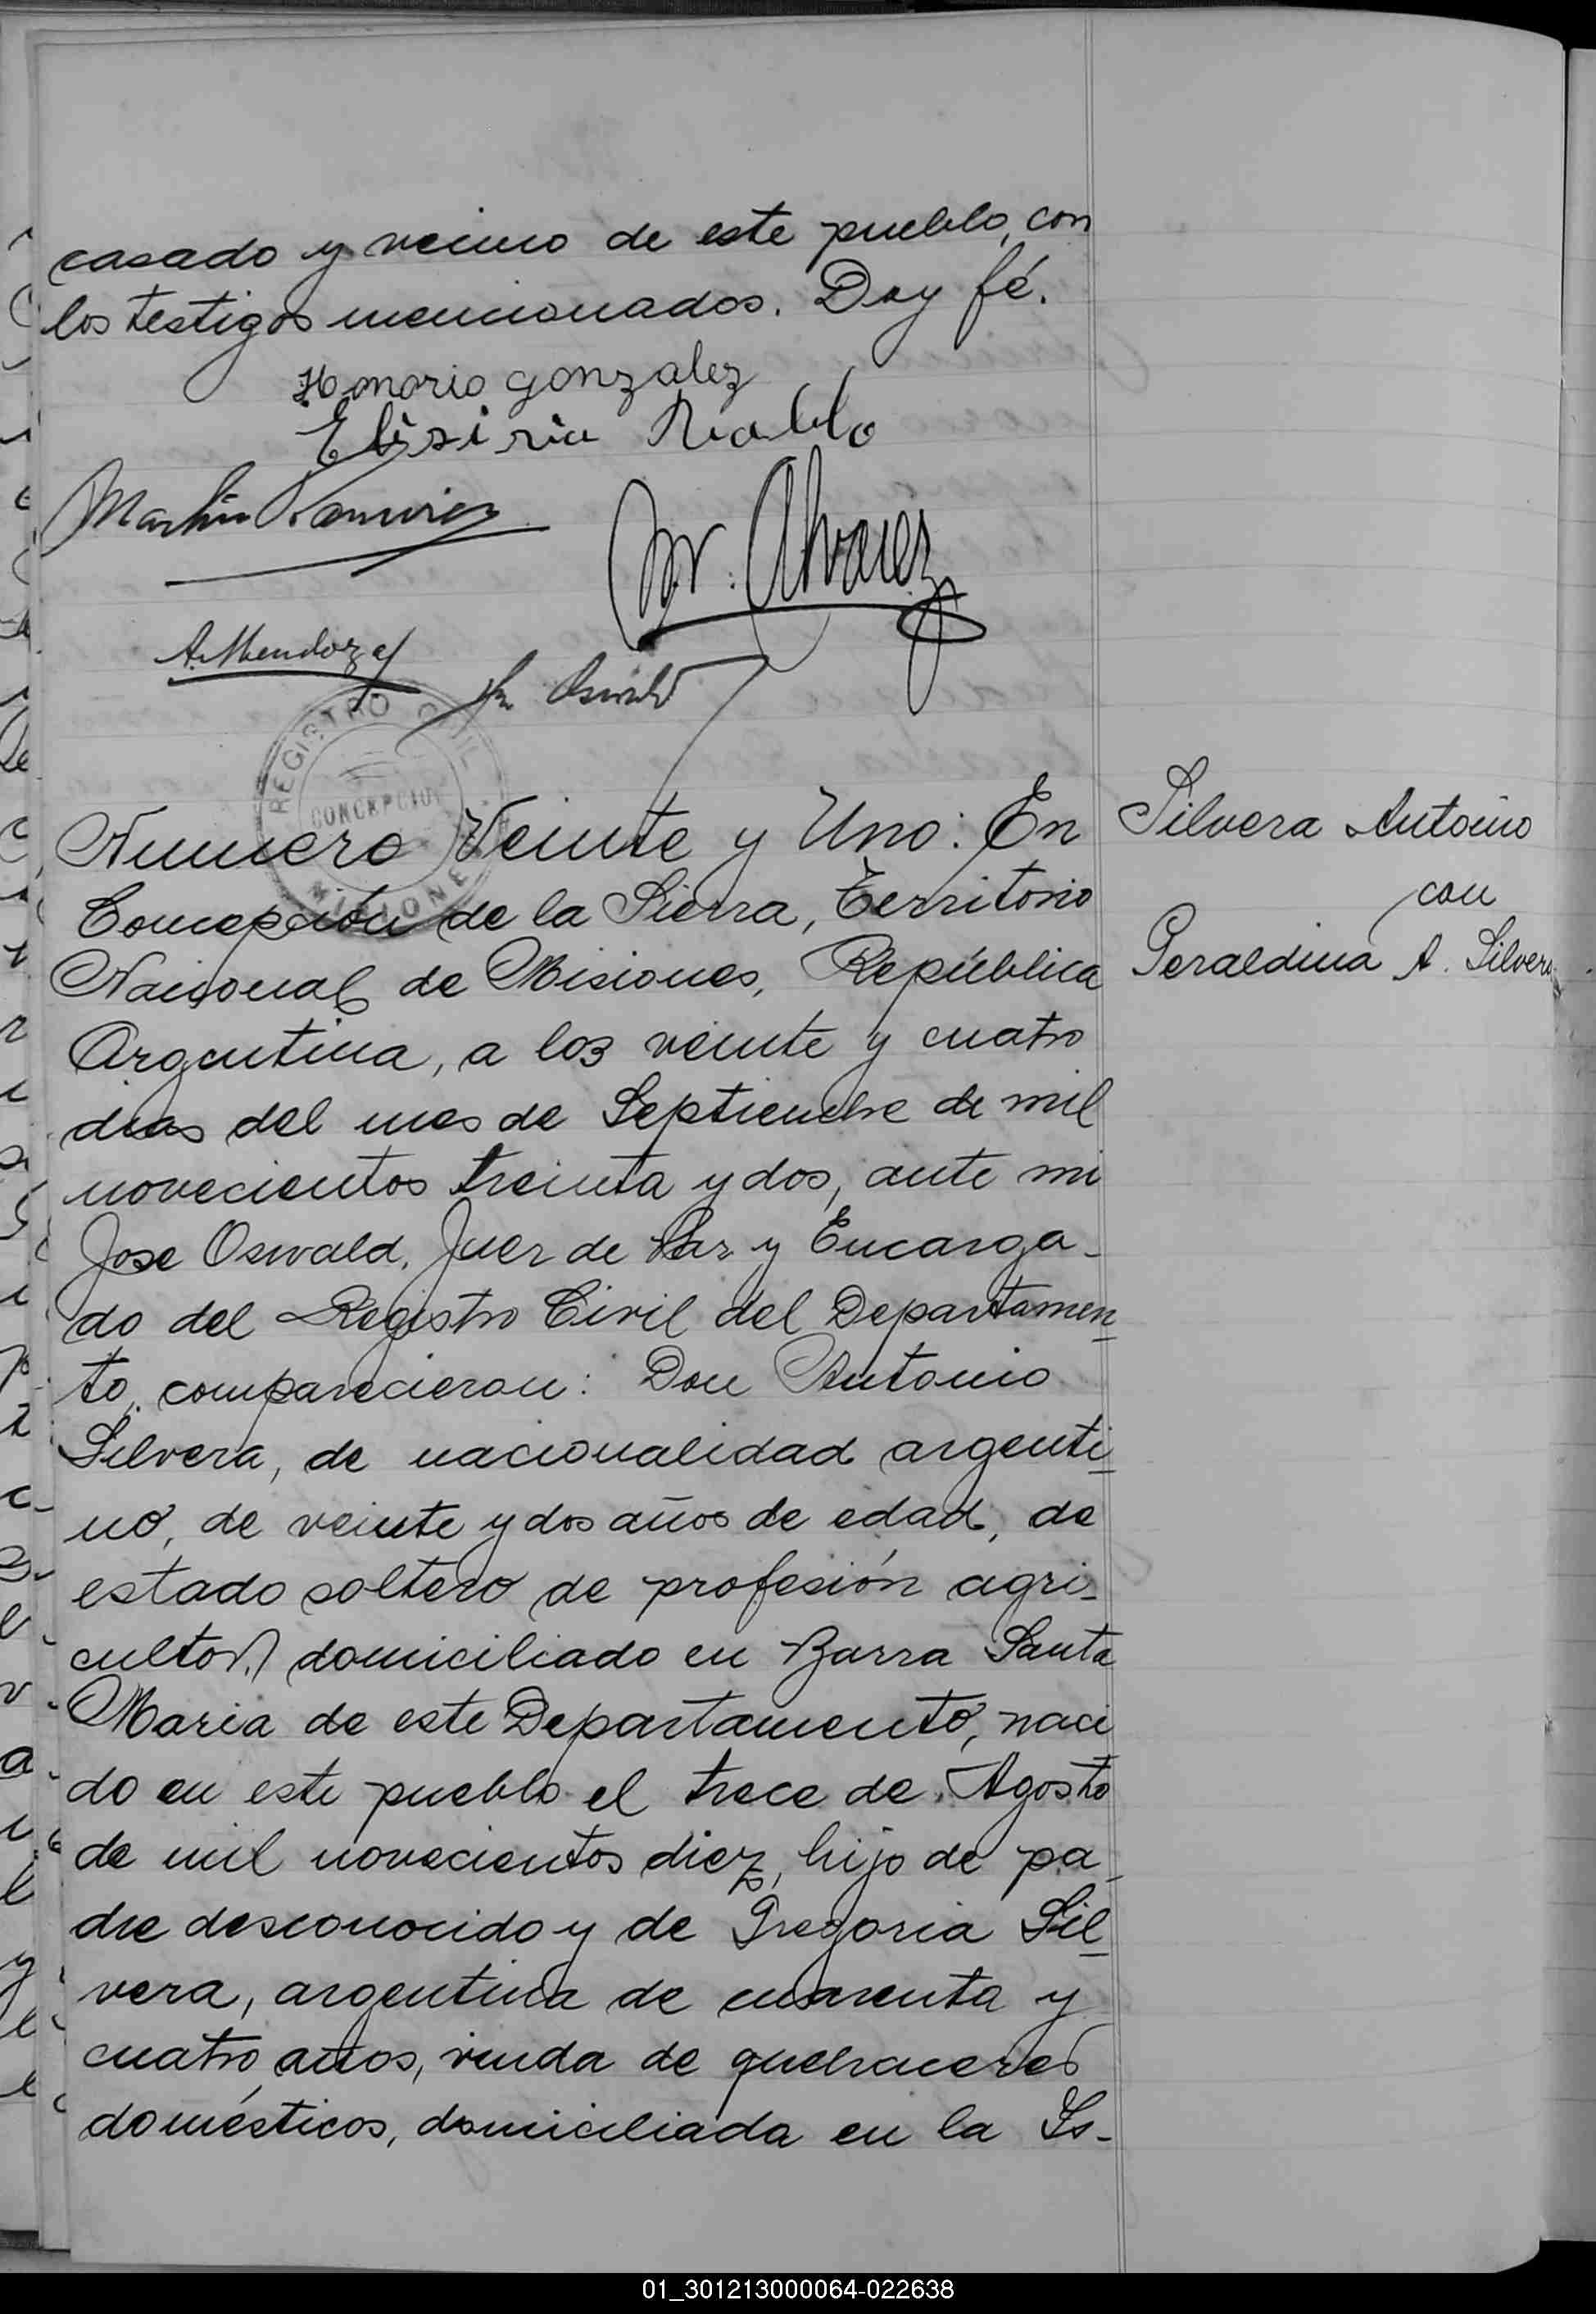 casado y vecino de este pueblo, con
los testigos mencionados. Doy fé.
Honorio gonzalez
Martin Ramirez
Alvarez
A. Mendoza
Oswald
REGISTRO CIVIL
CONCEPCION
MISIONES
Numero Veinte y Uno: En
Concepción de la Sierra, Territorio
Nacional de Misiones, República
Argentina, a los veinte y cuatro
dias del mes de Septiembre de mil
novecientos treinta y dos, ante mi
Jose Oswald, Juez de Paz y Encarga-
do del Registro Civil del Departamen-
to, comparecieron: Don Antonio
Silvera, de nacionalidad argenti-
no, de veinte y dos años de edad, de
estado soltero de profesión agri-
cultor, domiciliado en Barra Santa
Maria de este Departamento, naci
do en este pueblo el trece de Agosto
de mil novecientos diez, hijo de pa-
dre desconocido y de Gregoria Sil-
vera, argentina de cuarenta y
cuatro años, viuda de quehaceres
domésticos, domiciliada en la Is-
Silvera Antonio
con
Geraldina A. Silvera
01_301213000064-022638